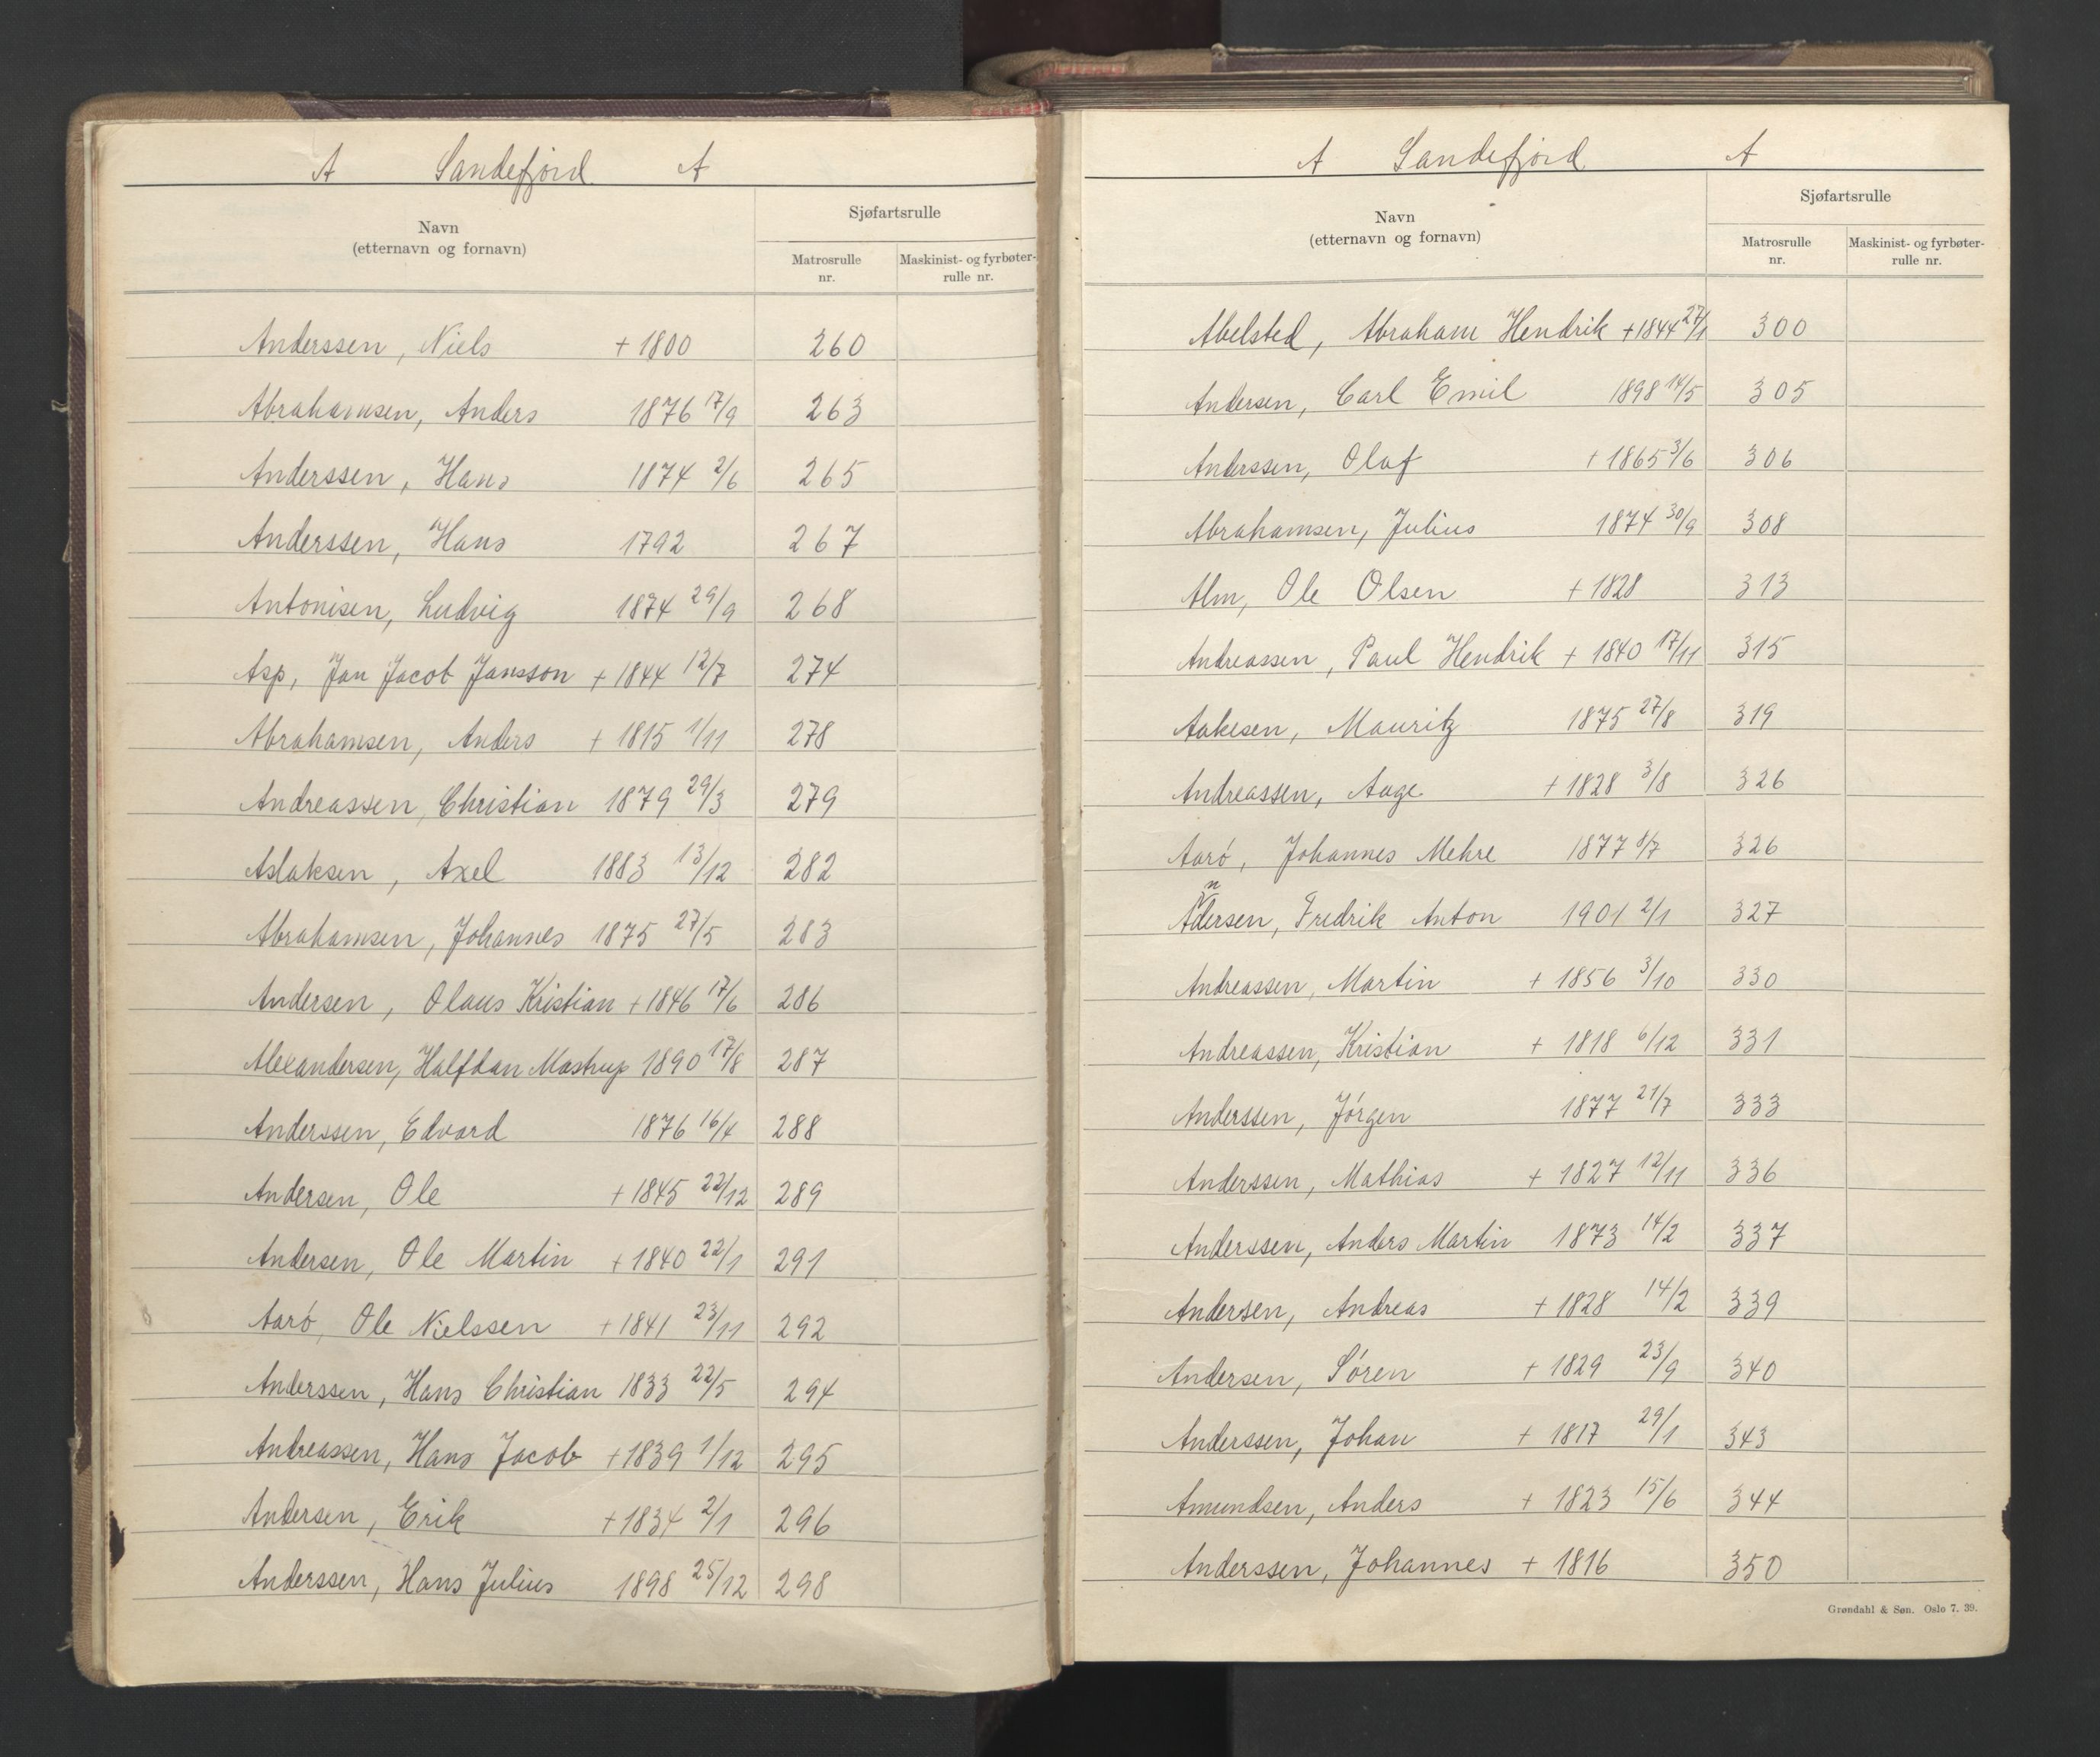 A Sandefjord A
Navn
(etternavn og fornavn)
Sjøfartsrulle
Matrosrulle
nr.
Maskinist- og fyrbøter-
rulle nr.
Anderssen, Niels + 1800 260
Abrahamsen, Anders 1876 17/9 263
Anderssen, Hans 1874 2/6 265
Anderssen, Hans 1792 267
Antonisen, Ludvig 1874 29/9 268
Asp, Jan Jacob Jansson + 1844 12/7 274
Abrahamsen, Anders + 1815 1/11 278
Andreassen, Christian 1879 29/3 279
Aslaksen, Axel 1883 13/12 282
Abrahamsen, Johannes 1875 27/5 283
Andersen, Olaus Kristian + 1846 17/6 286
Alexandersen, Halfdan Mastrup 1890 17/8 287
Anderssen, Edvard 1876 16/4 288
Andersen, Ole + 1845 22/12 289
Andersen, Ole Martin + 1840 22/1 291
Aarö, Ole Nielssen + 1841 23/11 292
Anderssen, Hans Christian 1833 22/5 294
Andreassen, Hans Jacob + 1839 1/12 295
Andersen, Erik + 1834 2/1 296
Anderssen, Hans Julius 1898 25/12 298
A Sandefjord A
Navn
(etternavn og fornavn)
Sjøfartsrulle
Matrosrulle
nr.
Maskinist- og fyrbøter-
rulle nr.
Abelsted, Abraham Hendrik + 1844 27/1 300
Andersen, Carl Emil 1898 14/5 305
Anderssen, Olaf + 1865 3/6 306
Abrahamsen, Julius 1874 30/9 308
Alm, Ole Olsen + 1828 313
Andreassen, Paul Hendrik + 1840 17/11 315
Aakesen, Mauritz 1875 27/8 319
Andreassen, Aage + 1828 3/8 326
Aarö, Johannes Mehre 1877 8/7 326
Andersen, Fredrik Anton 1901 2/1 327
Andreassen, Martin + 1856 3/10 330
Andreassen, Kristian + 1818 6/12 331
Anderssen, Jörgen 1877 21/7 333
Anderssen, Mathias + 1827 12/11 336
Anderssen, Anders Martin 1873 14/2 337
Andersen, Andreas + 1828 14/2 339
Andersen, Sören + 1829 23/9 340
Anderssen, Johan + 1817 29/1 343
Amundsen, Anders + 1823 15/6 344
Anderssen, Johannes + 1816 350
Grøndahl & Søn. Oslo 7. 39.